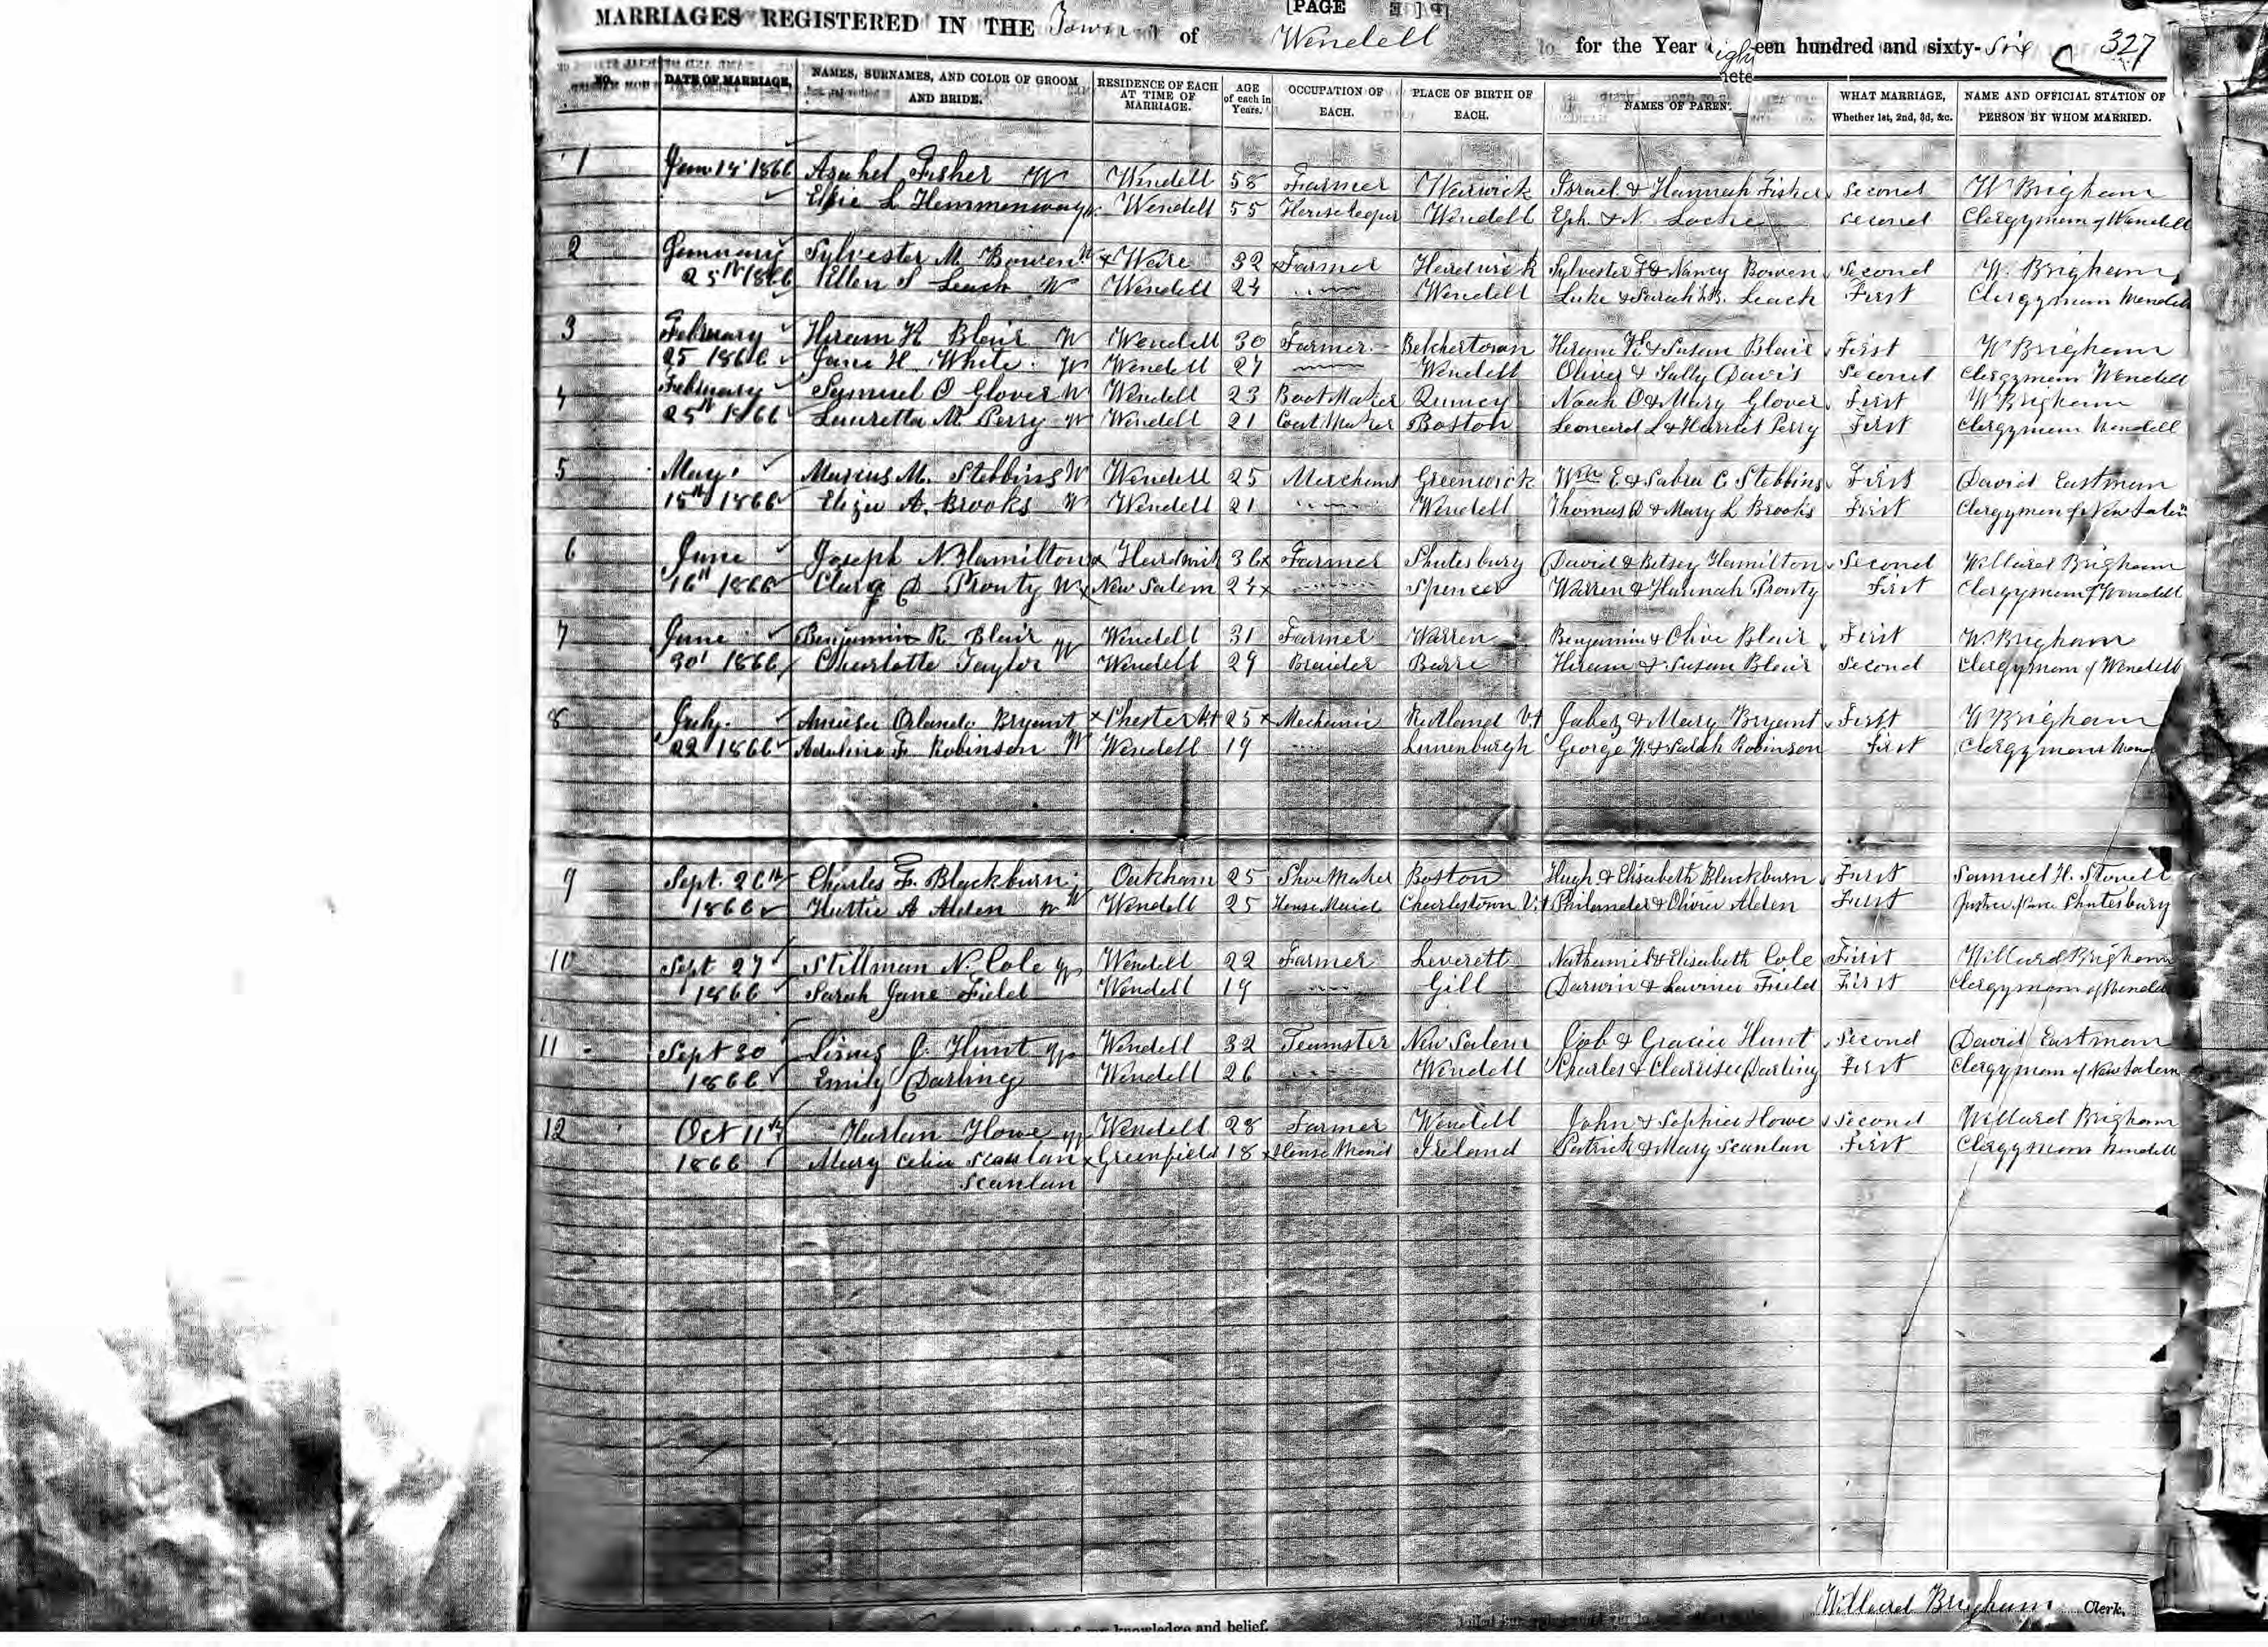 [PAGE
MARRIAGES REGISTERED IN THE Town of Wendell for the Year eighteen hundred and sixty-Six 327
No. DATE OF MARRIAGE. NAMES, SURNAMES, AND COLOR OF GROOM AND BRIDE. RESIDENCE OF EACH AT TIME OF MARRIAGE. AGE of each in Years. OCCUPATION OF EACH. PLACE OF BIRTH OF EACH. NAMES OF PAREN. WHAT MARRIAGE, Whether 1st, 2nd, 3d, &c. NAME AND OFFICIAL STATION OF PERSON BY WHOM MARRIED.
1 Jan. 14 1866 Asahel Fisher W Wendell 58 Farmer Warwick Israel & Hannah Fisher Second W Brigham
Elsie L Hemmenway W Wendell 55 Housekeeper Wendell Eph. & N. Locke second Clergyman of Wendell
2 January Sylvester M. Bowen W x Ware 32 x Farmer Hardwick Sylvester F & Nancy Bowen Second W. Brigham
25th 1866 Ellen S Leach W Wendell 24 Wendell Luke & Sarah B. Leach First Clergyman Wendell
3 February Hiram K Blair W Wendell 30 Farmer Belchertown Hiram K & Susan Blair First W Brigham
25 1866 Jane H. White W Wendell 27 Wendell Oliver & Sally Davis Second Clergyman Wendell
4 February Samuel O Glover W Wendell 23 Boot Maker Quincy Noah O & Mary Glover First W Brigham
25th 1866 Lauretta M. Perry W Wendell 21 Coat Maker Boston Leonard L & Harriet Perry First Clergyman Wendell
5 May Marcus M. Stebbins W Wendell 25 Merchant Greenwich Wm E & Sabra C Stebbins First David Eastman
15th 1866 Eliza A. Brooks W Wendell 21 Wendell Thomas D & Mary L Brooks First Clergyman of New Salem
6 June Joseph N. Hamilton x Hardwick 36 x Farmer Shutesbury David & Betsey Hamilton Second Willard Brigham
16th 1866 Clara D Prouty W x New Salem 24 x Spencer Warren & Hannah Prouty First Clergyman of Wendell
7 June Benjamin R. Blair Wendell 31 Farmer Warren Benjamin & Olive Blair First W Brigham
30 1866 Charlotte Taylor W Wendell 29 Braider Barre Hiram & Susan Blair Second Clergyman of Wendell
8 July Amasa Orlando Bryant x Chester Vt 25 x Mechanic Rutland Vt Jabez & Mary Bryant First W Brigham
22 1866 Adeline F. Robinson W Wendell 19 Lunenburgh George W. & Sarah Robinson First Clergyman
9 Sept. 26th Charles F. Blackburn Oakham 25 Shoe Maker Boston Hugh & Elisabeth Blackburn First Samuel H. Stowell
1866 Hattie A Alden W Wendell 25 House Maid Charlestown Vt Philander & Olivia Alden First Justice Peace Shutesbury
10 Sept 27 Stillman N. Cole W Wendell 22 Farmer Leverett Nathaniel & Elisabeth Cole First Willard Brigham
1866 Sarah Jane Field Wendell 19 Gill Darwin & Lavina Field First Clergyman of Wendell
11 Sept 30 Linus J. Hunt W Wendell 32 Teamster New Salem Job & Gracia Hunt Second David Eastman
1866 Emily Darling Wendell 26 Wendell Charles & Clarrisa Darling First Clergyman of New Salem
12 Oct 11th Harlan Howe W Wendell 28 Farmer Wendell John & Sophia Howe Second Willard Brigham
1866 Mary Celia Scanlan x Greenfield 18 x House Maid Ireland Patrick & Mary Scanlan First Clergyman Wendell
Scanlan
Willard Brigham Clerk.
knowledge and belief.